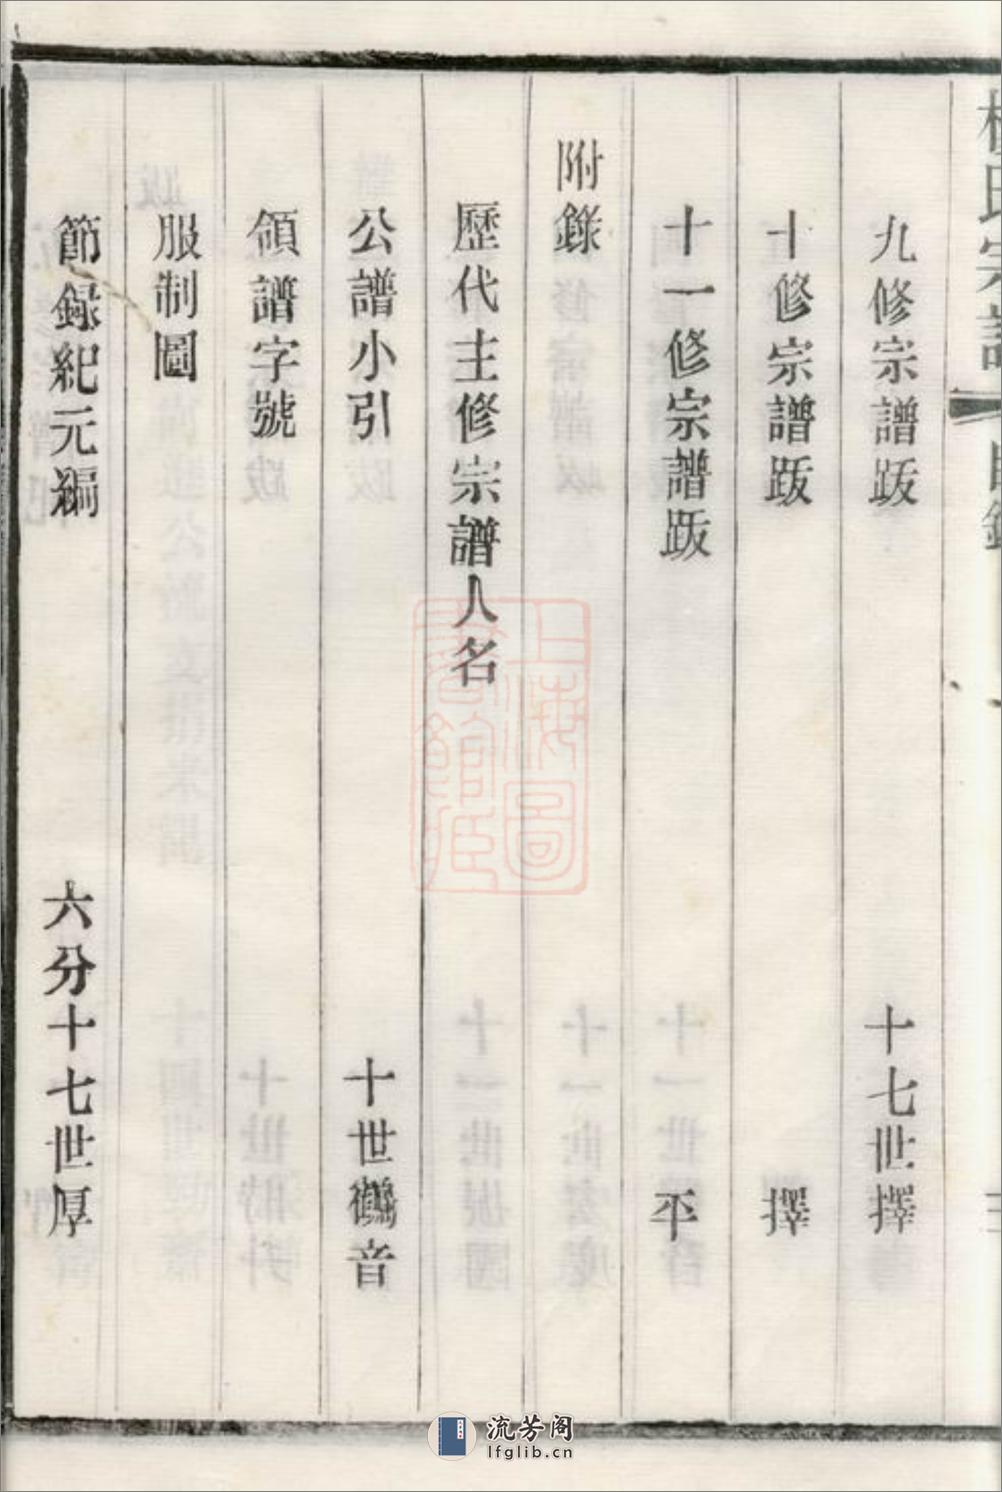 九修宗譜跋 十七世擇
十修宗譜跋 擇
十一修宗譜跋 平
附錄
歷代主修宗譜人名
公譜小引 十世鶴音
領譜字號
服制圖
節録紀元編 六分十七世厚
上海圖
書館藏
流芳阁
lfglib.cn